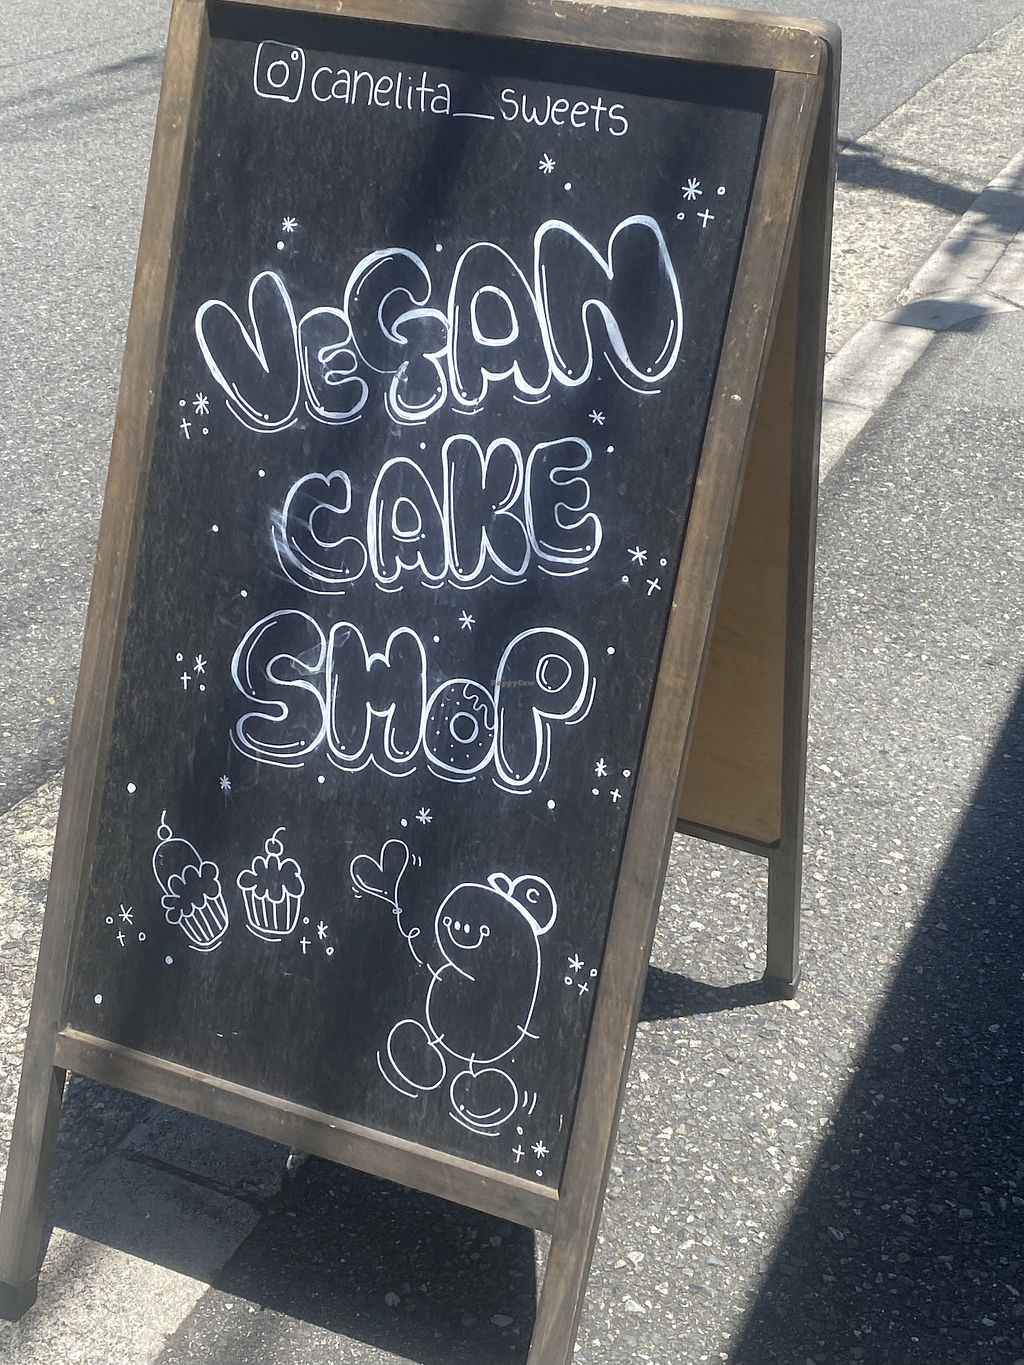 canelita_sweets
VEGAN
CAKE
SHOP
HappyCow
C